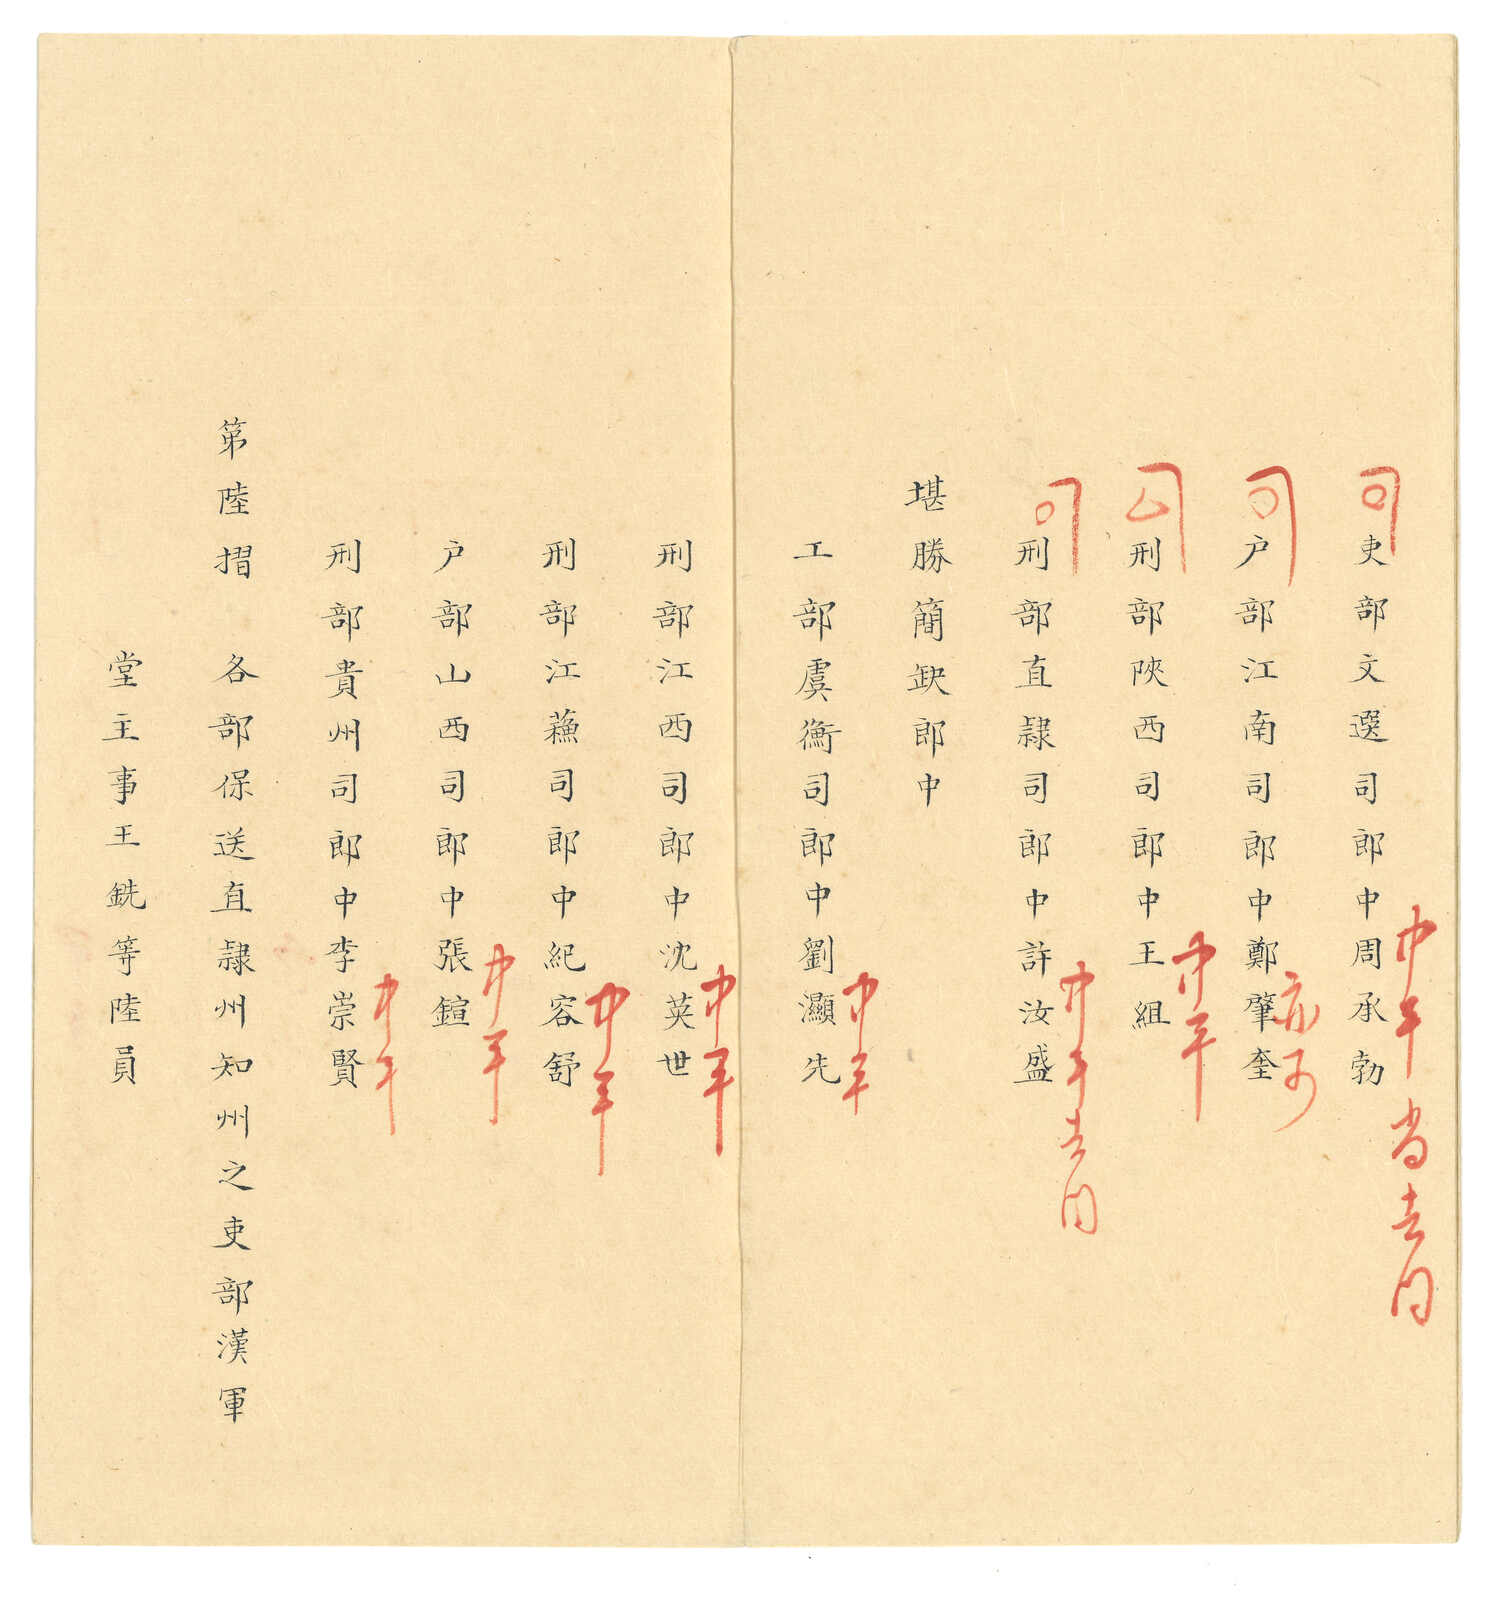 吏部文選司郎中周承勃
中平 尚去得
户部江南司郎中鄭肇奎
亦可
刑部陝西司郎中王組
中平
刑部直隸司郎中許汝盛
中平去得
堪勝簡缺郎中
工部虞衡司郎中劉灝先
中平
刑部江西司郎中沈英世
中平
刑部江蘓司郎中紀容舒
中平
户部山西司郎中張鍹
中平
刑部貴州司郎中李崇賢
中平
第陸摺 各部保送直隸州知州之吏部漢軍
堂主事王銑等陸員